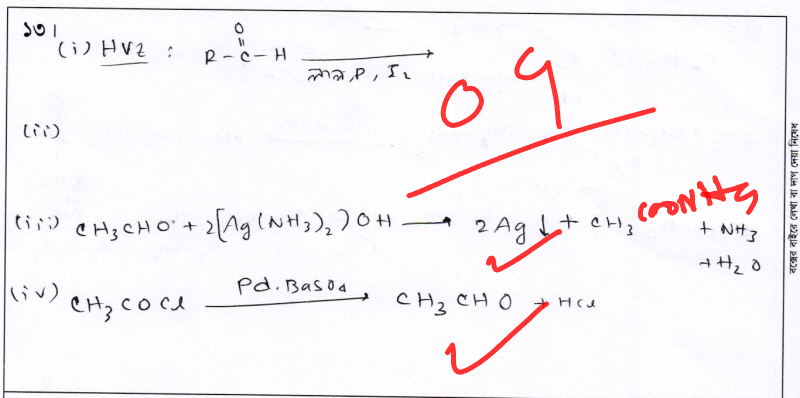 ১৩।
(i) HVZ : R-C-H লাল, P, I2
O
(ii)
(iii) CH3CHO + 2[Ag(NH3)2)OH → 2Ag↓ + CH3 COONH4 + NH3
+ H2O
(iv) CH3COCl Pd.BaSO4 → CH3CHO + HCl
09
বক্সের বাইরে লেখা বা দাগ দেয়া নিষেধ